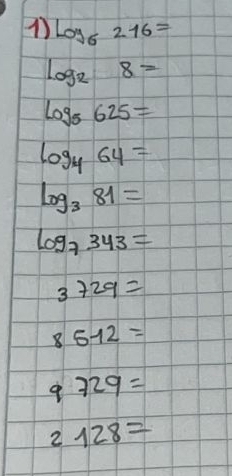 1) Log₆ 216 =
Log₂ 8 =
Log₅ 625 =
Log₄ 64 =
Log₃ 81 =
Log₇ 343 =
₃ 729 =
₈ 512 =
₉ 729 =
₂ 128 =